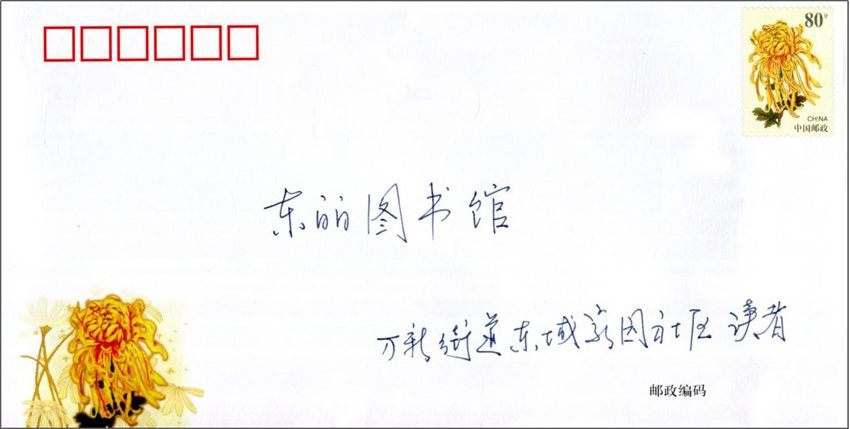 80分
CHINA
中国邮政
东丽图书馆
万新街道东域家园社区 读者
邮政编码